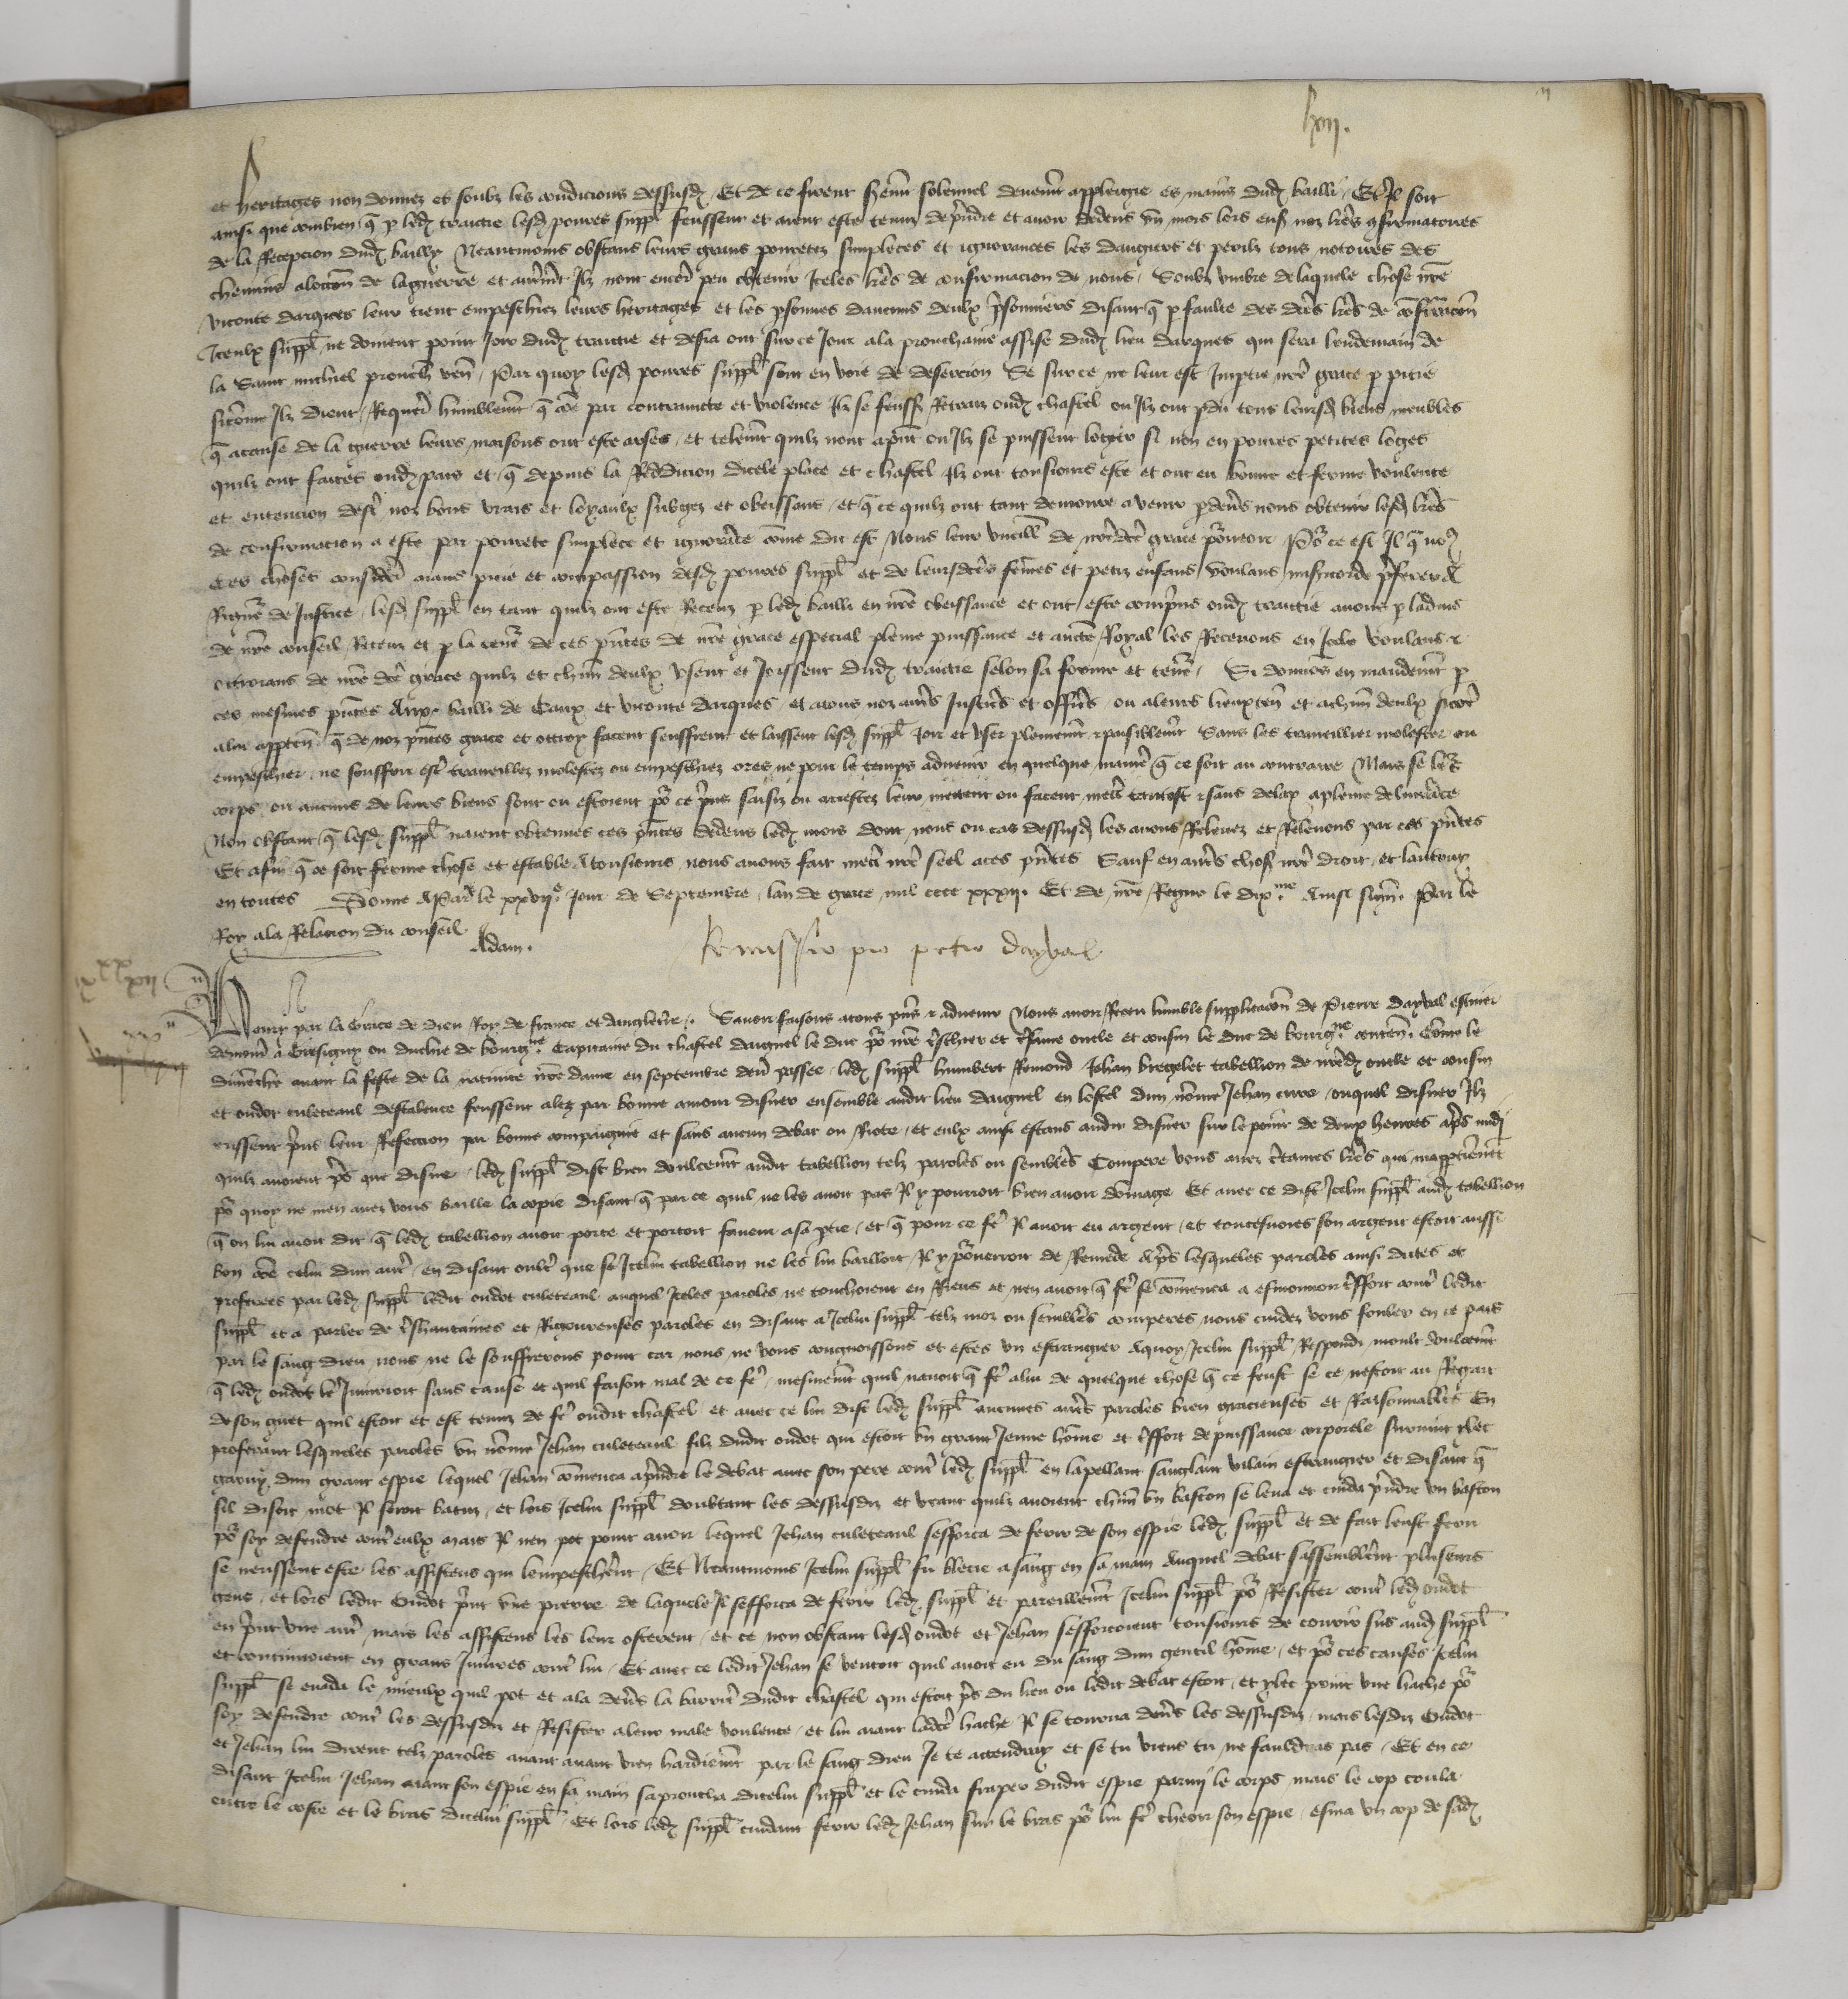 et heritages non donnez et soubz les condicions dessusd. Et de ce firent serem̄t solennel devem̄t applegie es mains dud. bailli. Et Il soit
ainsi que combien q̄ p led. traictie lesd. povres suppl. feussent et aient este tenuz de p̄ndre et avoir dedens un mois lors ens. noz lr̄es ꝯfirmatoires
de la Recepcion dud. bailly Neantmoins obstans leurs grans povretez simpleces et ignorances les dangiers et perilz tous notoires des
chemins a loccon̄ de la guerre et autrem̄t Ilz nont encor̄ peu obtenir Iceles lr̄es de confirmacion de nous. Soubz umbre de laquele chose nr̄e
viconte darques leur tient empeschiez leurs heritages et les p̄sonnes daucuns deulx p̄sonniers disant q̄ p faulte des dc̄es lr̄es de cōfirmacōn
Iceulx suppl. ne doivent point Joir dud. traictie et desia ont sur ce Jour a la prouchaine assise dud. lieu darques qui sera lendemain de
la saint michiel prouch̄ ven̄. Par quoy lesd. povres suppl. sont en voie de desercion Se sur ce ne leur est Imptie nr̄e grace p pitie
sicōme Ilz dient Requer̄ humblem̄t q̄ cōe par contrainte et violence Ilz se feuss. Retraiz oud. chastel ou Ilz ont pdu tous leursd. biens meubles
q̄ a cause de la guerre leurs maisons ont este arses et telem̄t quilz nont a pn̄t ou Ilz se puissent logier si non en povres petites loges
quilz ont faites oud. pais et q̄ depuis la Reddicion dicele place et chastel Ilz ont tousiours este et ont eu bonne et ferme voulente
et entencion destr̄ noz bons vrais et loyaulx subgez et obeissans, et q̄ ce quilz ont tant demoure a venir p devs̄ nous obtenir lesd. lr̄es
de confirmacion a este par povrete simplece et ignorāce cōme dit est Nous leur vueill. de nr̄edc̄e grace po͛veoir Po͛ ce est Il q̄ no͛
Ces choses considere͛ aians pitie et compassion desd. povres suppl. et de leursdc̄es fem̄es et petiz enfans voulans misericorde p̄ferer a
Rigueͬ de Justice, lesd. suppl. en tant quilz ont este Receuz p led. bailli en nr̄e obeissance et ont este comp̄ns oud. traictie avons p ladvis
de nr̄e conseil Receuz et p la teneͬ de ces pn̄tes de nr̄e grace especial pleine puissance et aucte͛ Royal les Recevons en Icele voulans ⁊
ottroians de nr̄e dc̄e grace quilz et chūn deulx usent et Joissent dud. traictie selon sa forme et teneͬ. Si donnōs en mandem̄t p
ces mesmes pn̄tes Aux bailli de Caux et viconte darques et a tous noz autr̄s Justic̄s et offic̄s ou a leurs lieuxten̄ et a chūn deulx si cōe
a lui appten̄ q̄ de noz pn̄tes grace et ottroy facent seuffrent et laissent lesd. suppl. Joir et user plainem̄t ⁊ paisiblem̄t Sans les traveillier molester ou
empeschier, ne souffrir estr̄ traveillez molestez ou empeschiez ores ne pour le temps advenir en quelque manie͛ q̄ ce soit au contraire Mais se le͛s
corps ou aucuns de leurs biens sont ou estoient po͛ ce p̄ns saisiz ou arrestez leur mettent ou facent mectr̄ tantost ⁊ sans delay a pleine delivrāce
Non obstant q̄ lesd. suppl. naient obtenues ces pn̄tes dedens led. mois dont nous ou cas dessusd. les avons Relevez et Relevons par ces pn̄tes
Et afin q̄ ce soit ferme chose et estable a tousiours nous avons fait mectr̄ nr̄e seel a ces pn̄tes Sauf en autr̄s chos. nr̄e droit, et lautruy
en toutes Donne A Paris le xxviiᵉ. Jour de Septembre, lan de grace mil cccc xxxij. Et de nr̄e Regne le dixᵐᵉ. Ainsi sign̄. Par le
Roy a la Relacion du conseil
Adam.
Remissio pro petro dayval
Henry par la Grace de Dieu Roy de france et dangleterre. Savoir faisons a tous pn̄s ⁊ advenir Nous avoir Receu humble supplicacōn de Pierre dayval escuier
demour̄ a Gresigny ou duchie de bourgⁿᵉ. Capitaine du chastel daignel le duc po͛ nr̄e tr̄schier et tr̄same oncle et cousin le duc de bourgⁿᵉ contēn. Cōme le
dimēche avant la feste de la nativite nr̄e dame en septembre derr̄ passee, led. suppl. humbert Remond Jehan bregelet tabellion de nr̄ed. oncle et cousin
et oudot culeteaul destalence feussent alez par bonne amour disner ensemble audit lieu daignel en lostel dun nōme Jehan curre, ouquel disner Ilz
eussent p̄ns leur Refeccion par bonne compaignie et sans aucun debat ou Riote, et eulx ainsi estans audit disner sur le point de deux heures apr̄s midj
quilz avoient pr̄s que disne, led. suppl. dist bien doulcem̄t audit tabellion telz paroles ou semblēs Compere vous avez c̄taines lr̄es qui mapptienēt
po͛ quoy ne men avez vous baille la copie disant q̄ par ce quil ne les avoit pas Il y pourroit bien avoir dōmage Et avec ce dist Icelui suppl. aud. tabellion
q̄ on lui avoit dit q̄ led. tabellion avoit porte et portoit faveur a sa ptie, et q̄ pour ce fe͛ Il avoit eu argent, et toutesvoies son argent estoit aussi
bon cōe celui dun autr̄, en disant oultr̄ que se Icelui tabellion ne les lui bailloit, Il y po͛verroit de Remede Apr̄s lesqueles paroles ainsi dictes et
proferees par led. suppl. ledit oudot culeteaul auquel Iceles paroles ne touchoient en Riens et nen avoit q̄ fe͛ se cōmenca a esmouvoir tr̄sfort contr̄ ledit
suppl. et a parler de tr̄shautaines et Rigoureuses paroles en disant a Icelui suppl. telz mos ou semblēs comperes, nous cuidez vous fouler en ce pais
par le sang dieu nous ne le souffrerons point car nous ne vous congnoissons et estes un estrangier Aquoy Icelui suppl. Respondi moult doulcem̄t
q̄ led. oudot le Juiurioit sans cause et quil faisoit mal de ce fe͛, mesmem̄t quil navoit q̄ fe͛ a lui de quelque chose q̄ ce feust se ce nestoit au Regart
de son guet quil estoit et est tenuz de fe͛ oudit chastel et avec ce lui dist led. suppl. aucunes autr̄s paroles bien gracieuses et Raisonnables En
proferant lesqueles paroles un nōme Jehan culeteaul filz dudit oudot qui estoit un grant Jeune hōme et tr̄sfort de puissance corporele survint ylec
garny dun grant espie lequel Jehan cōmenca a p̄ndre le debat avec son pere contr̄ led. suppl. en lapellant sanglant vilain estrangier et disant q̄
sil disoit mot Il seroit batuz, et lors Icelui suppl. doubtant les dessusdiz et veant quilz avoient chūn un baston se leva et cuida p̄ndre un baston
po͛ soy defendre contr̄ eulx mais Il nen pot point avoir lequel Jehan culeteaul sefforca de ferir de son espie led. suppl. et de fait leust feru
se neussent este les assistens qui lempescher̄nt, Et Neantmoins Icelui suppl. fu blecie a sang en sa main Auquel debat sassembler̄nt pluseurs
gens, et lors ledit Oudot p̄nt une pierre de laquele Il sefforca de ferir led. suppl. et pareillem̄t Icelui suppl. po͛ Resister contr̄ led. oudot
en p̄nt une autr̄ mais les assistens les leur osterent, et ce non obstant lesd. oudot et Jehan sefforcoient tousiours de courir sus aud. suppl.
et continuoient en grans Iniures contr̄ lui, Et avec ce ledit Jehan se ventoit quil avoit eu du sang dun gentil hōme, et po͛ ces causes Icelui
suppl. se evada le mieulx quil pot et ala devs̄ la barrie͛ dudit chastel qui estoit pr̄s du lieu ou ledit debat estoit, et ylec print une hache po͛
soy defendre contr̄ les dessusdiz et Resister a leur male voulente, et lui aiant ladc̄e hache Il se tourna devs̄ les dessusdiz, mais lesdiz Oudot
et Jehan lui dirent telz paroles avant avant vien hardiem̄t par le sang dieu Je te attendray et se tu viens tu ne fauldras pas, Et en ce
disant Icelui Jehan aiant son espie en sa main saproucha dicelui suppl. et le cuida fraper dudit espie parmi le corps mais le cop coula
entre le coste et le bras dicelui suppl. Et lors led. suppl. cuidant ferir led. Jehan sur le bras po͛ lui fe͛ cheoir son espie, esma un cop de sad.